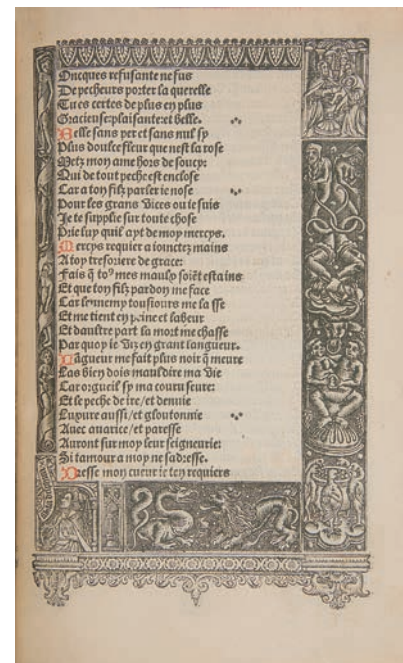 Oncques refusante ne fus
De pecheurs porter la querelle
Tu es certes de plus en plus
Gracieuse: plaisante: et belle.
Belle sans per et sans nul sy
Plus doulce fleur que nest la rose
Metz mon ame hors de soucy:
Qui de tout peche est enclose
Car a ton filz parler ie nose
Pour les grans vices ou ie suis
Je te supplie sur toute chose
Prie luy quil ayt de moy mercys.
Mercys requier a ioinctez mains
A toy tresoriere de grace:
Fais q̃ to⁹ mes maulx soiẽt estains
Et que ton filz pardon me face
Car lennemy tousiours me lasse
Et me tient en peine et labeur
Et daultre part la mort me chasse
Par quoy ie viz en grant langueur.
Lãgueur me fait plus noir q̃ meure
Las bien dois mauldire ma vie
Car orgueil sy ma couru seure:
Et le peche de ire/et denuie
Luxure aussi/et gloutonnie
Auec auarice/et paresse
Auront sur moy leur seigneurie:
Si tamour a moy ne sadresse.
Dresse mon cueur ie ten requiers